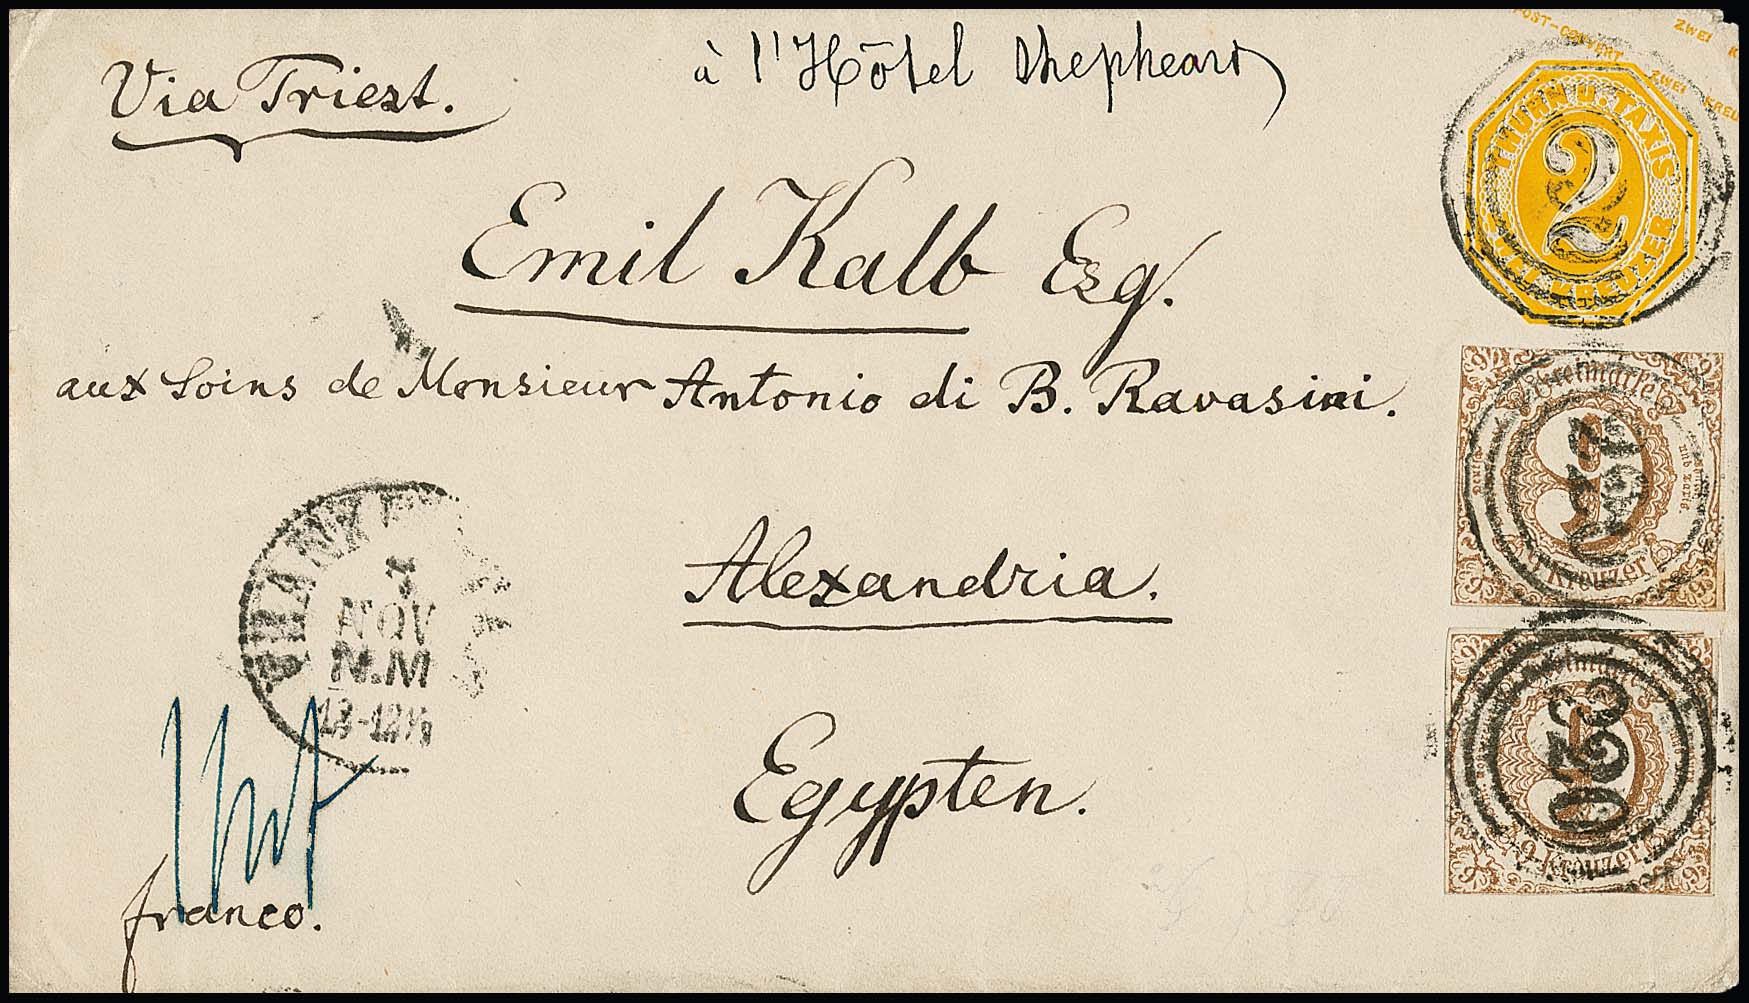 Via Triest.
à l'Hôtel Shepheard
POST-COUVERT ZWEI KREUZER
THURN U. TAXIS
2
ZWEI KREUZER
Emil Kalb Esq.
aux Soins de Monsieur Antonio di B. Ravasini.
Freimarke
9
9 Kreuzer
Alexandria.
FRANKFURT
NOV
N.M
12-12½
Freimarke
9 Kreuzer
Egypten.
franco.